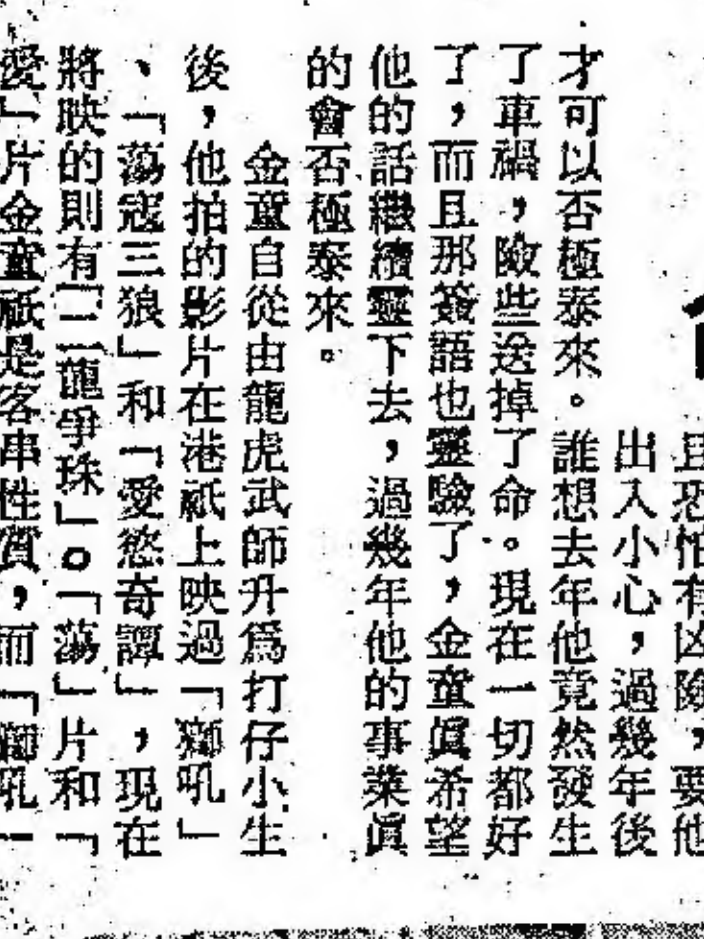 且恐怕有凶險，要他
出入小心，過幾年後
才可以否極泰來。誰想去年他竟然發生
了車禍，險些送掉了命。現在一切都好
了，而且那簽語也靈驗了，金童眞希望
他的話繼續靈下去，過幾年他的事業眞
的會否極泰來。
金童自從由龍虎武師升爲打仔小生
後，他拍的影片在港祇上映過「獅吼」
、「蕩寇三狼」和「愛慾奇譚」，現在
將映的則有「二龍爭珠」。「蕩」片和「
愛」片金童祇是客串性質，而「獅吼」